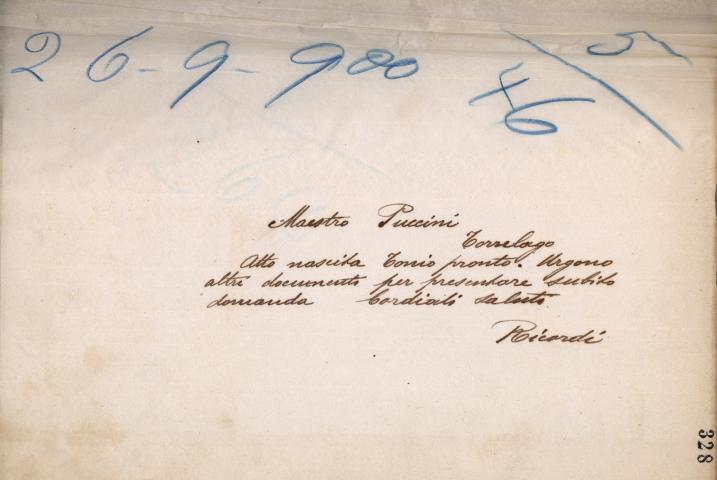 26-9-900
5/46
Maestro Puccini
Torrelago
Atto nascita Tonio pronto. Urgono
altri documenti per presentare subito
domanda Cordiali saluti
Ricordi
328